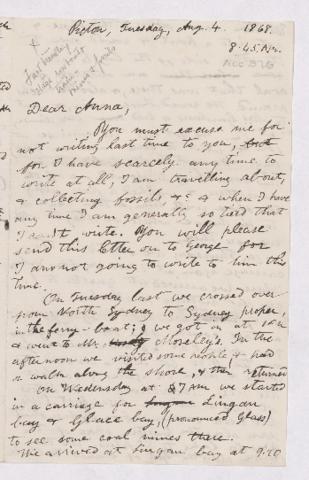 Pictou, Tuesday, Aug. 4. 1868.
8.45. A.M.
Dear Anna,
You must excuse me for
not writing last time to you, but
for I have scarcely any time to
write at all, I am travelling about,
& collecting fossils, &c & when I have
any time I am generally so tired that
I can't write. You will please
send this letter on to George for
I am not going to write to him this
time.
On Tuesday last we crossed over
from North Sydney to Sydney proper,
in the ferry-boat; we got in at
& went to Mr. Moseley's. In the
afternoon we visited some people & had
a walk along the shore, & then returned
On Wednesday at 7 AM we started
in a carriage for Lingan
bay & Glace bay, (pronounced Glass)
to see some coal mines there.
We arrived at Lingan bay at 9.20